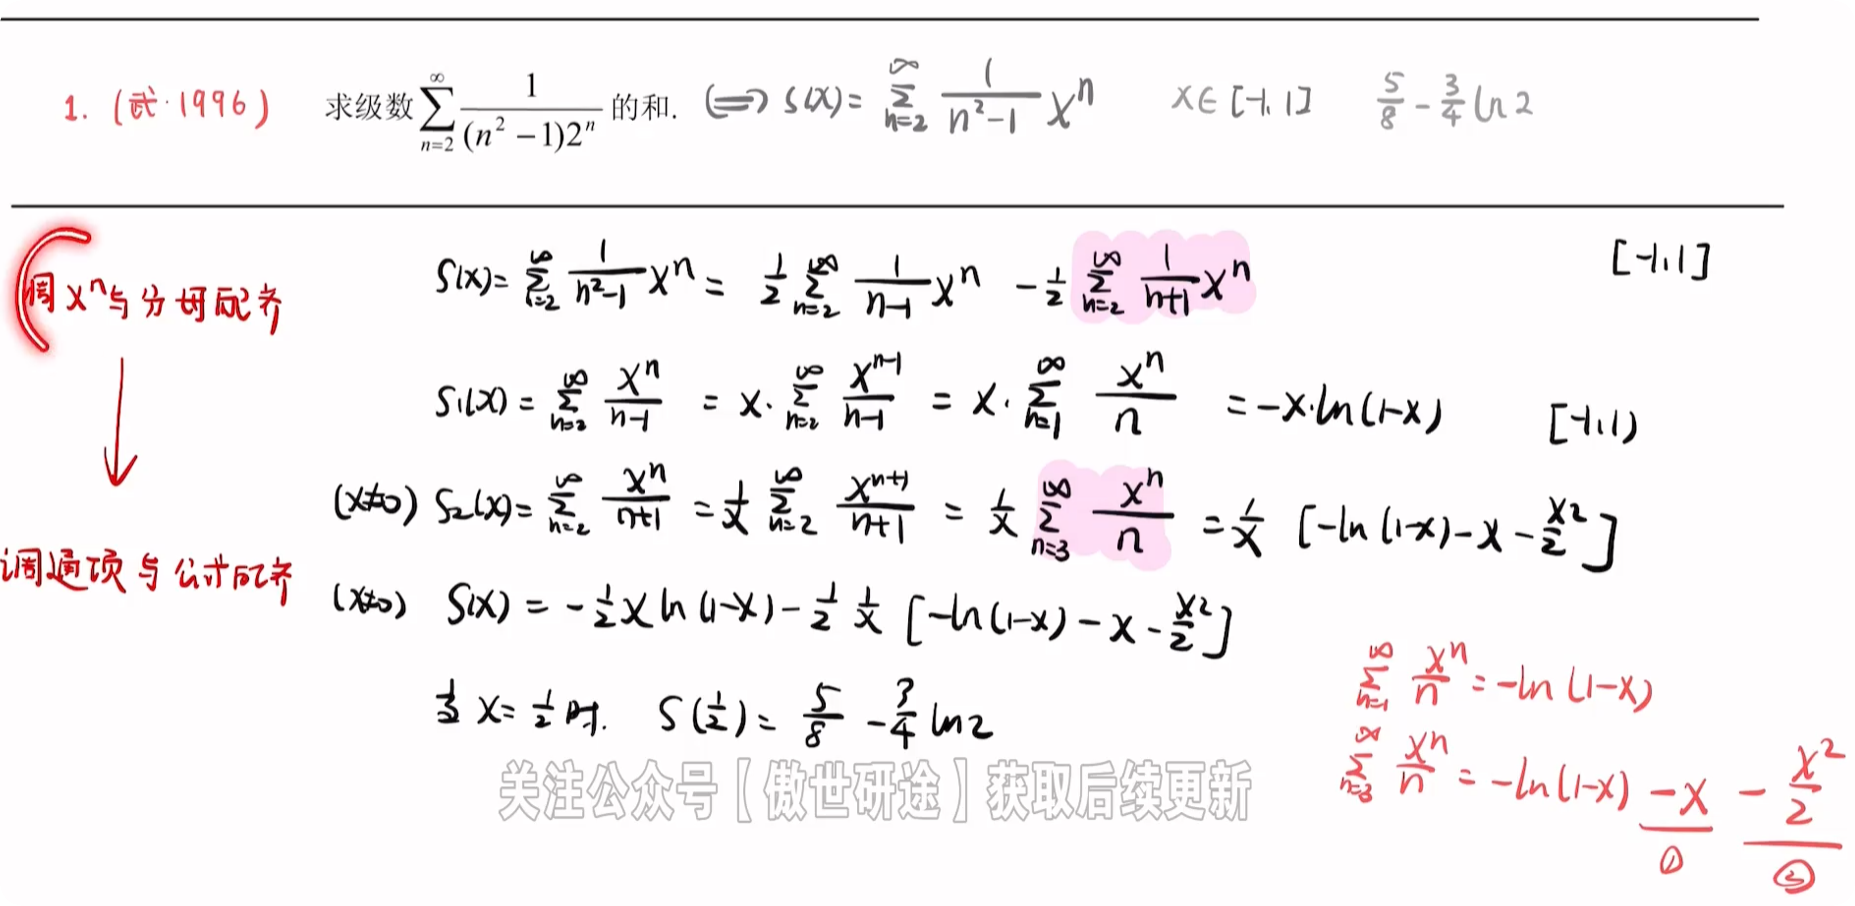 1. (武·1996) 求级数 $\sum_{n=2}^{\infty} \frac{1}{(n^2-1)2^n}$ 的和. (⟺) S(x)= $\sum_{n=2}^{\infty} \frac{1}{n^2-1} x^n$ x∈[-1,1] $\frac{5}{8} - \frac{3}{4}\ln 2$
调 xⁿ与分母配齐
S(x)= $\sum_{n=2}^{\infty} \frac{1}{n^2-1} x^n = \frac{1}{2} \sum_{n=2}^{\infty} \frac{1}{n-1} x^n - \frac{1}{2} \sum_{n=2}^{\infty} \frac{1}{n+1} x^n$ [-1,1]
S₁(x) = $\sum_{n=2}^{\infty} \frac{x^n}{n-1} = x \cdot \sum_{n=2}^{\infty} \frac{x^{n-1}}{n-1} = x \cdot \sum_{n=1}^{\infty} \frac{x^n}{n} = -x \cdot \ln(1-x)$ [-1,1)
(x≠0) S₂(x)= $\sum_{n=2}^{\infty} \frac{x^n}{n+1} = \frac{1}{x} \sum_{n=2}^{\infty} \frac{x^{n+1}}{n+1} = \frac{1}{x} \sum_{n=3}^{\infty} \frac{x^n}{n} = \frac{1}{x} [-\ln(1-x) - x - \frac{x^2}{2}]$
调通项与公式配齐
(x≠0) S(x) = $-\frac{1}{2} x \ln(1-x) - \frac{1}{2} \frac{1}{x} [-\ln(1-x) - x - \frac{x^2}{2}]$
当 x= $\frac{1}{2}$ 时. S($\frac{1}{2}$) = $\frac{5}{8} - \frac{3}{4} \ln 2$
$\sum_{n=1}^{\infty} \frac{x^n}{n} = -\ln(1-x)$
$\sum_{n=3}^{\infty} \frac{x^n}{n} = -\ln(1-x) - x - \frac{x^2}{2}$
① ②
关注公众号【傲世研途】获取后续更新